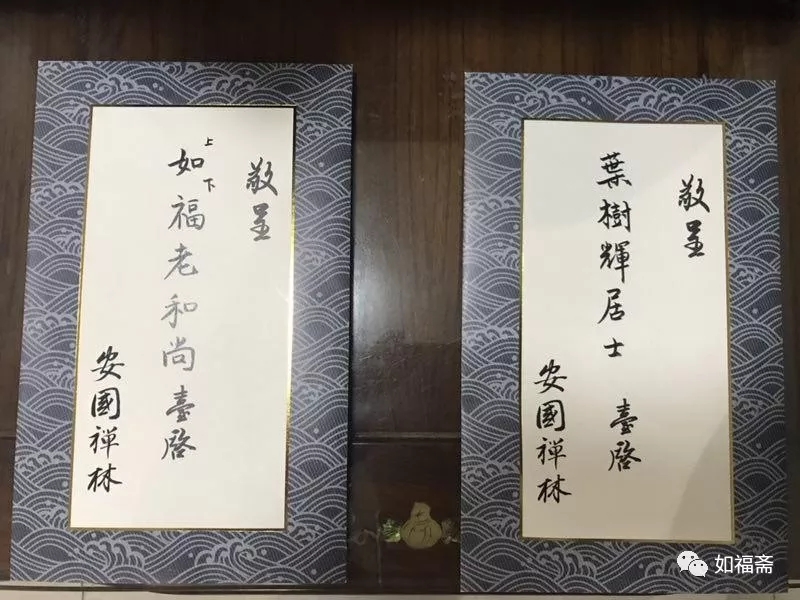 敬呈
上如下福老和尚臺啓
安國禅林
敬呈
葉樹輝居士 臺啓
安國禅林
如福斋